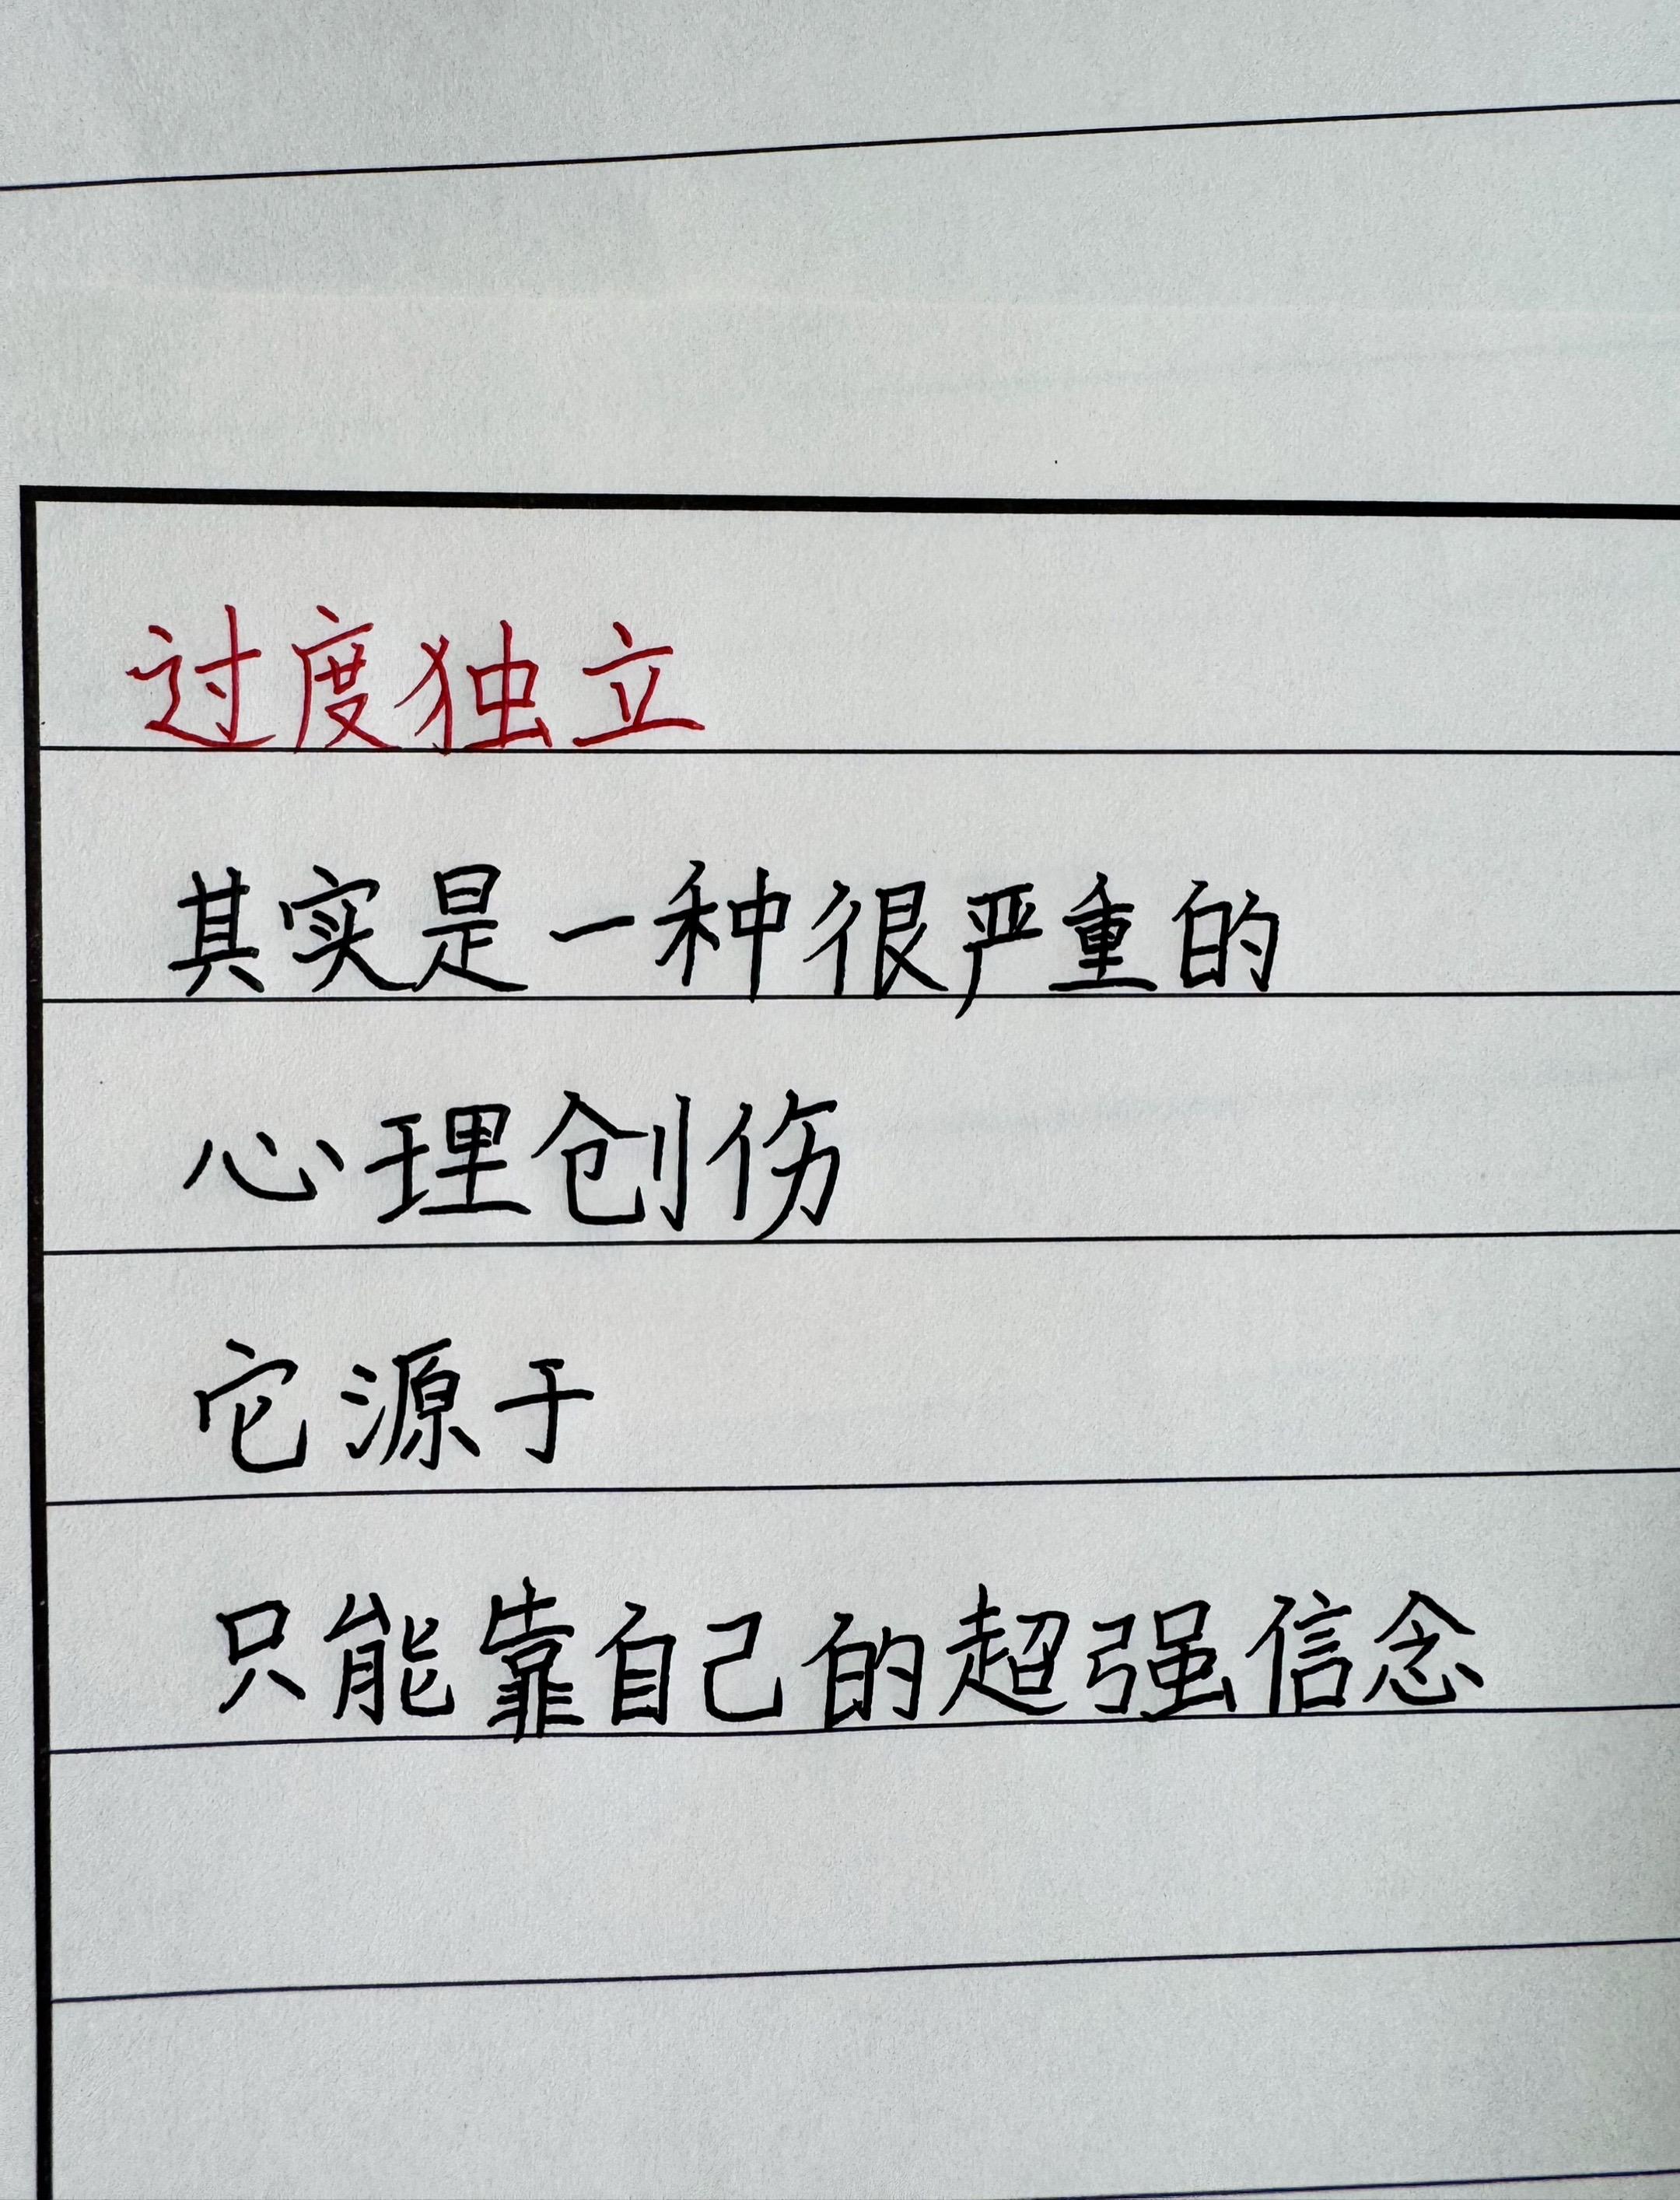 过度独立
其实是一种很严重的
心理创伤
它源于
只能靠自己的超强信念